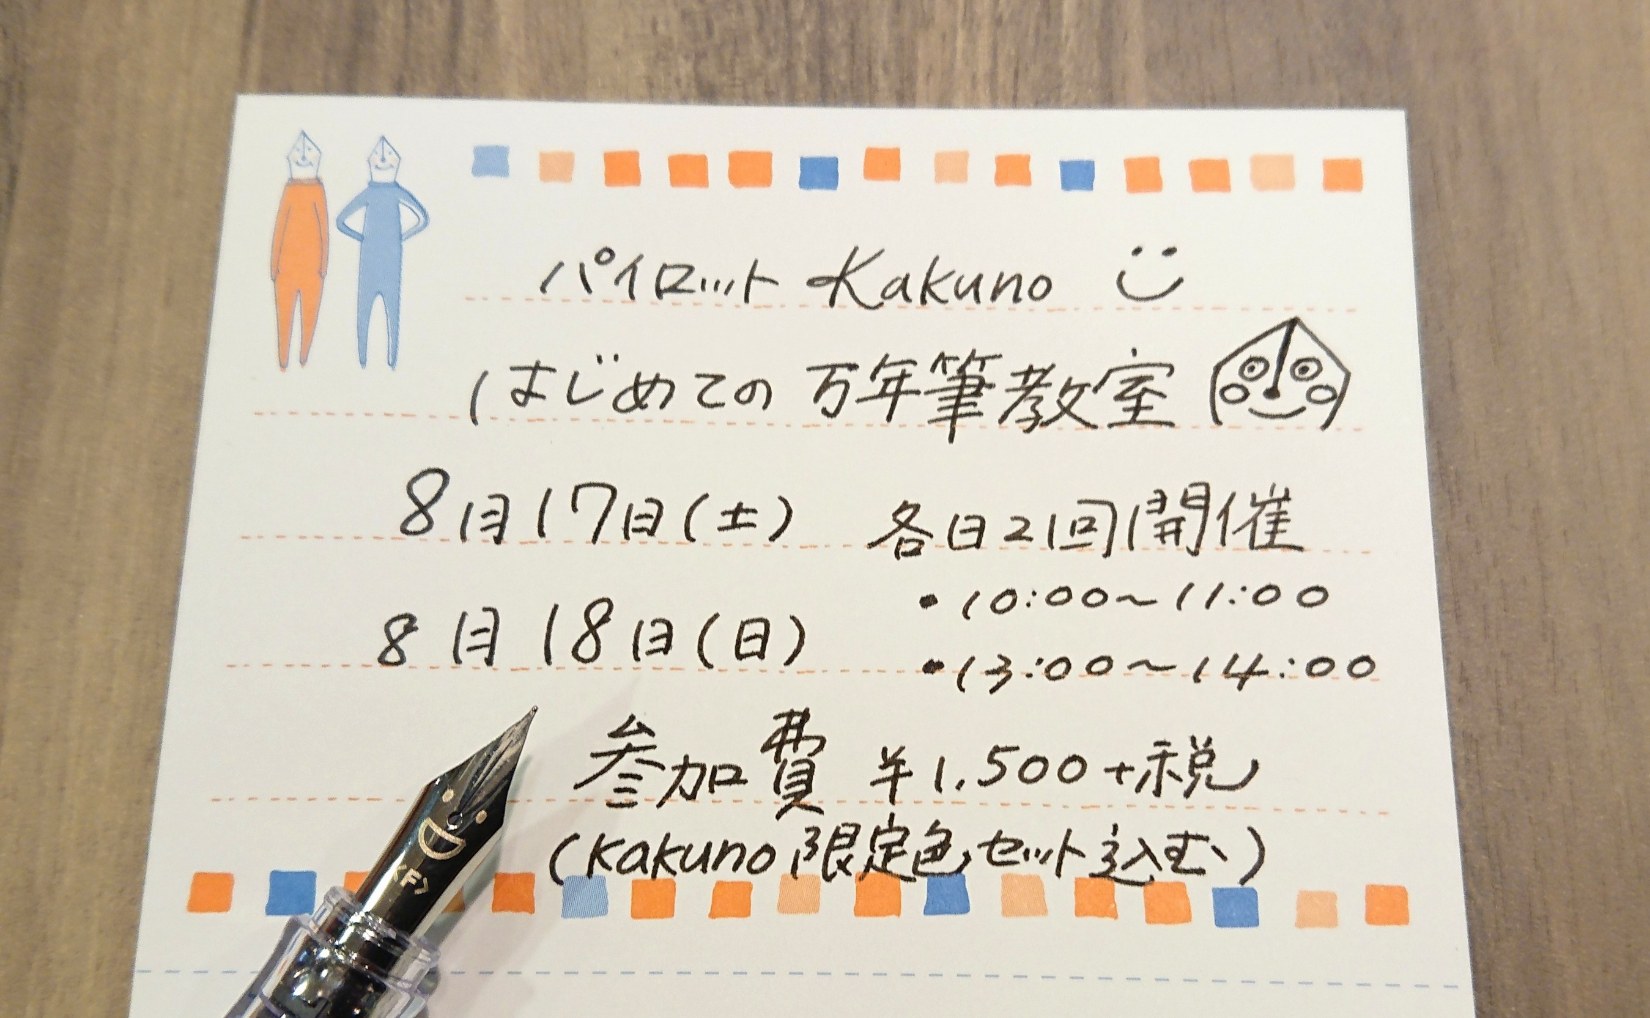 パイロット Kakuno
はじめての万年筆教室
8月17日(土) 各日2回開催
・10:00～11:00
8月18日(日)
・13:00～14:00
参加費 ¥1,500+税
(Kakuno限定色セット込む)
<F>